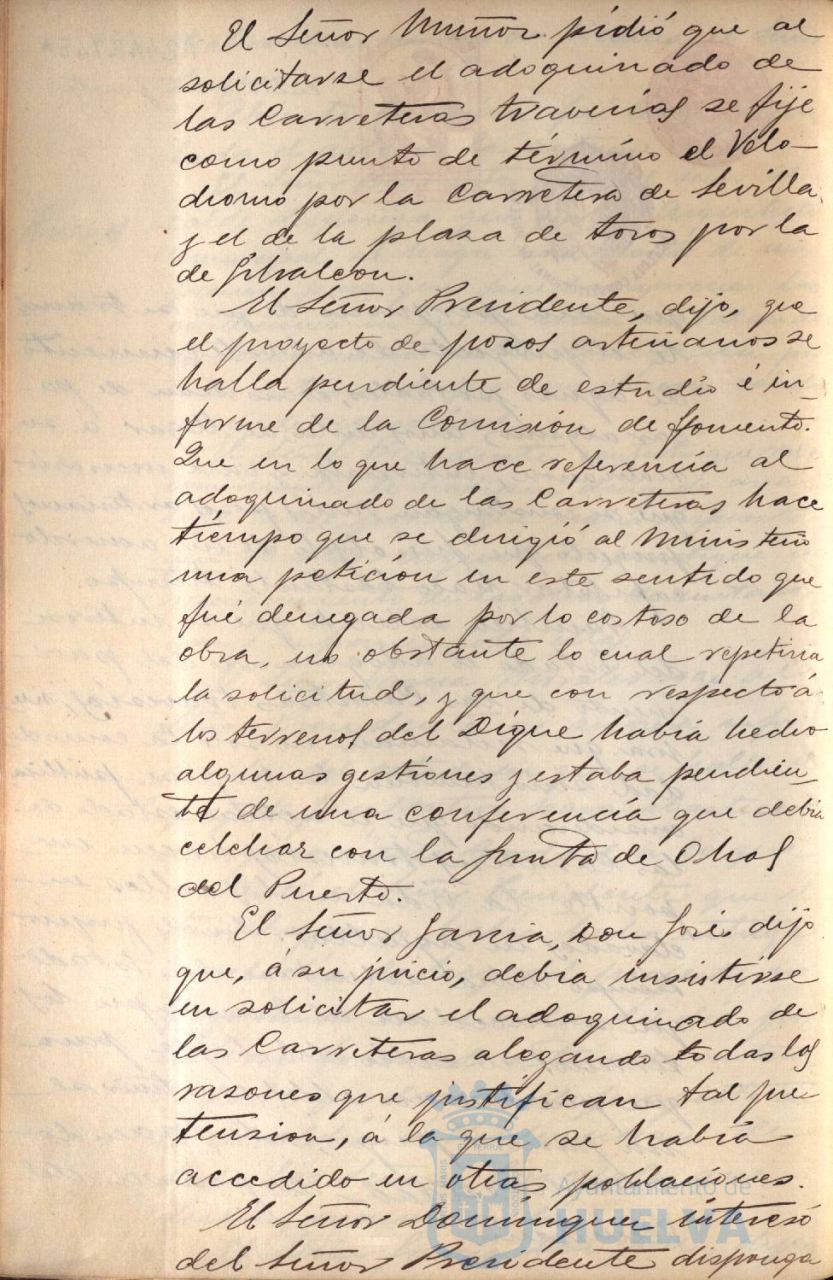 El Señor Muñoz pidió que al
solicitarse el adoquinado de
las Carreteras travesías se fije
como punto de término el Velo-
dromo por la Carretera de Sevilla,
y el de la plaza de toros por la
de Gibraleon.
El Señor Presidente, dijo, que
el proyecto de pozos artesianos se
halla pendiente de estudio é in-
forme de la Comisión de fomento.
Que en lo que hace referencia al
adoquinado de las Carreteras hace
tiempo que se dirigió al Ministerio
una petición en este sentido que
fué denegada por lo costoso de la
obra, no obstante lo cual repetiria
la solicitud, y que con respecto á
los terrenos del Dique había hecho
algunas gestiones y estaba pendien-
te de una conferencia que debia
celebrar con la Junta de Obras
del Puerto.
El Señor Garcia, Don José, dijo
que, á su juicio, debia insistirse
en solicitar el adoquinado de
las Carreteras alegando todas las
razones que justifican tal pre-
tension, á la que se había
accedido en otras poblaciones.
El Señor Dominguez interesó
del Señor Presidente disponga
Ayuntamiento de
HUELVA